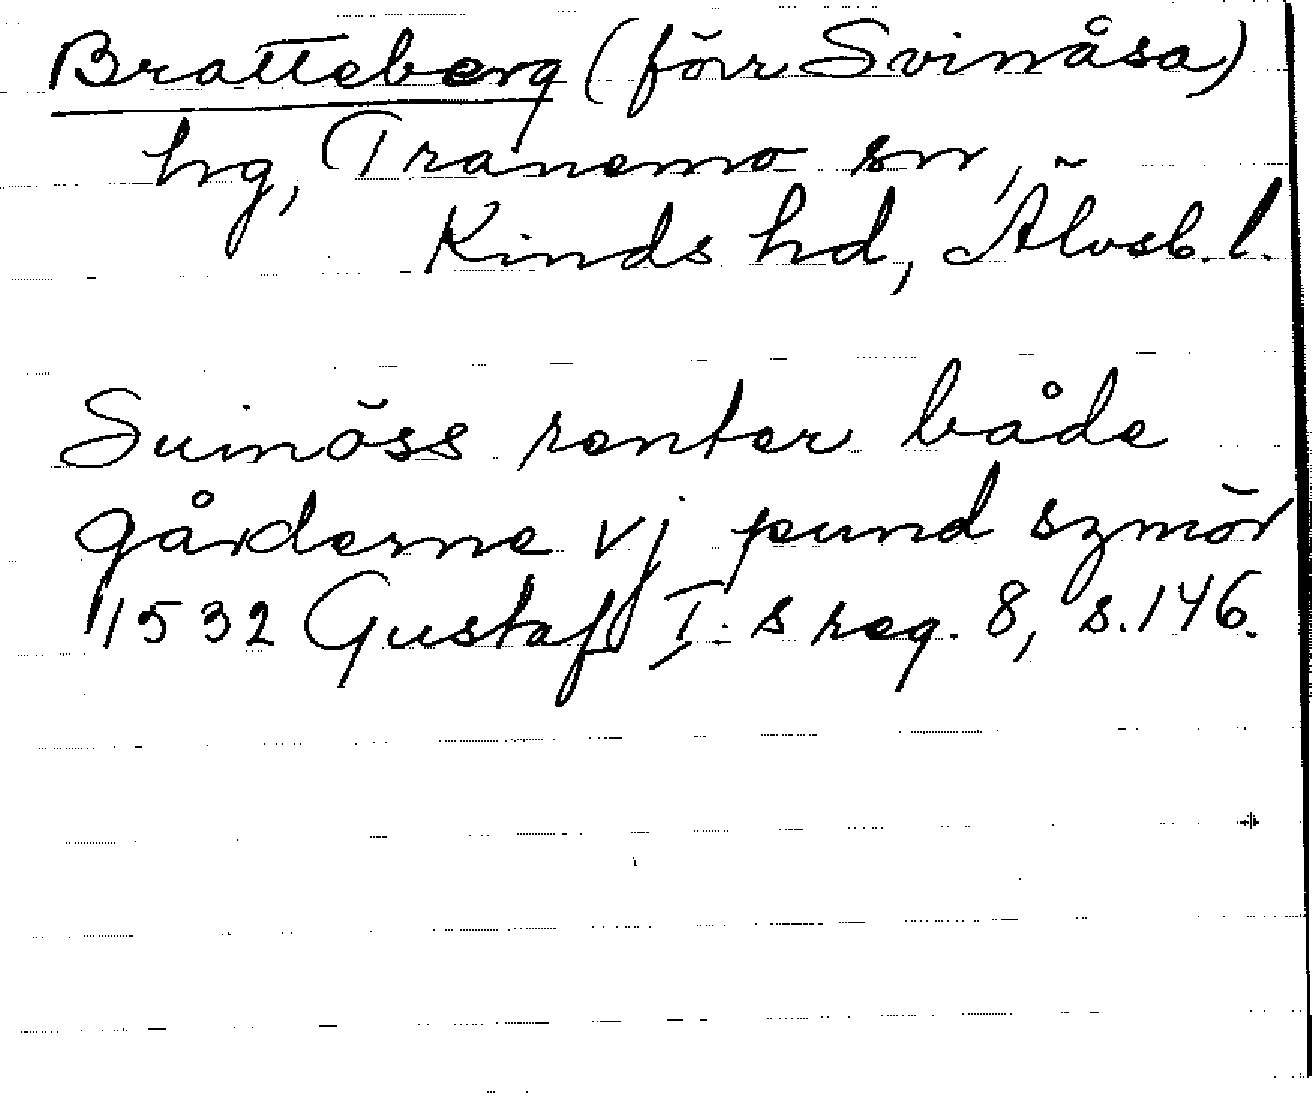 Bratteberg (förr Svinåsa)
hg, Tranemo sn,
Kinds hd, Älvsb. l.
Suinöss renter både
gårderne vj pund szmör
1532 Gustaf I:s reg. 8, s. 146.